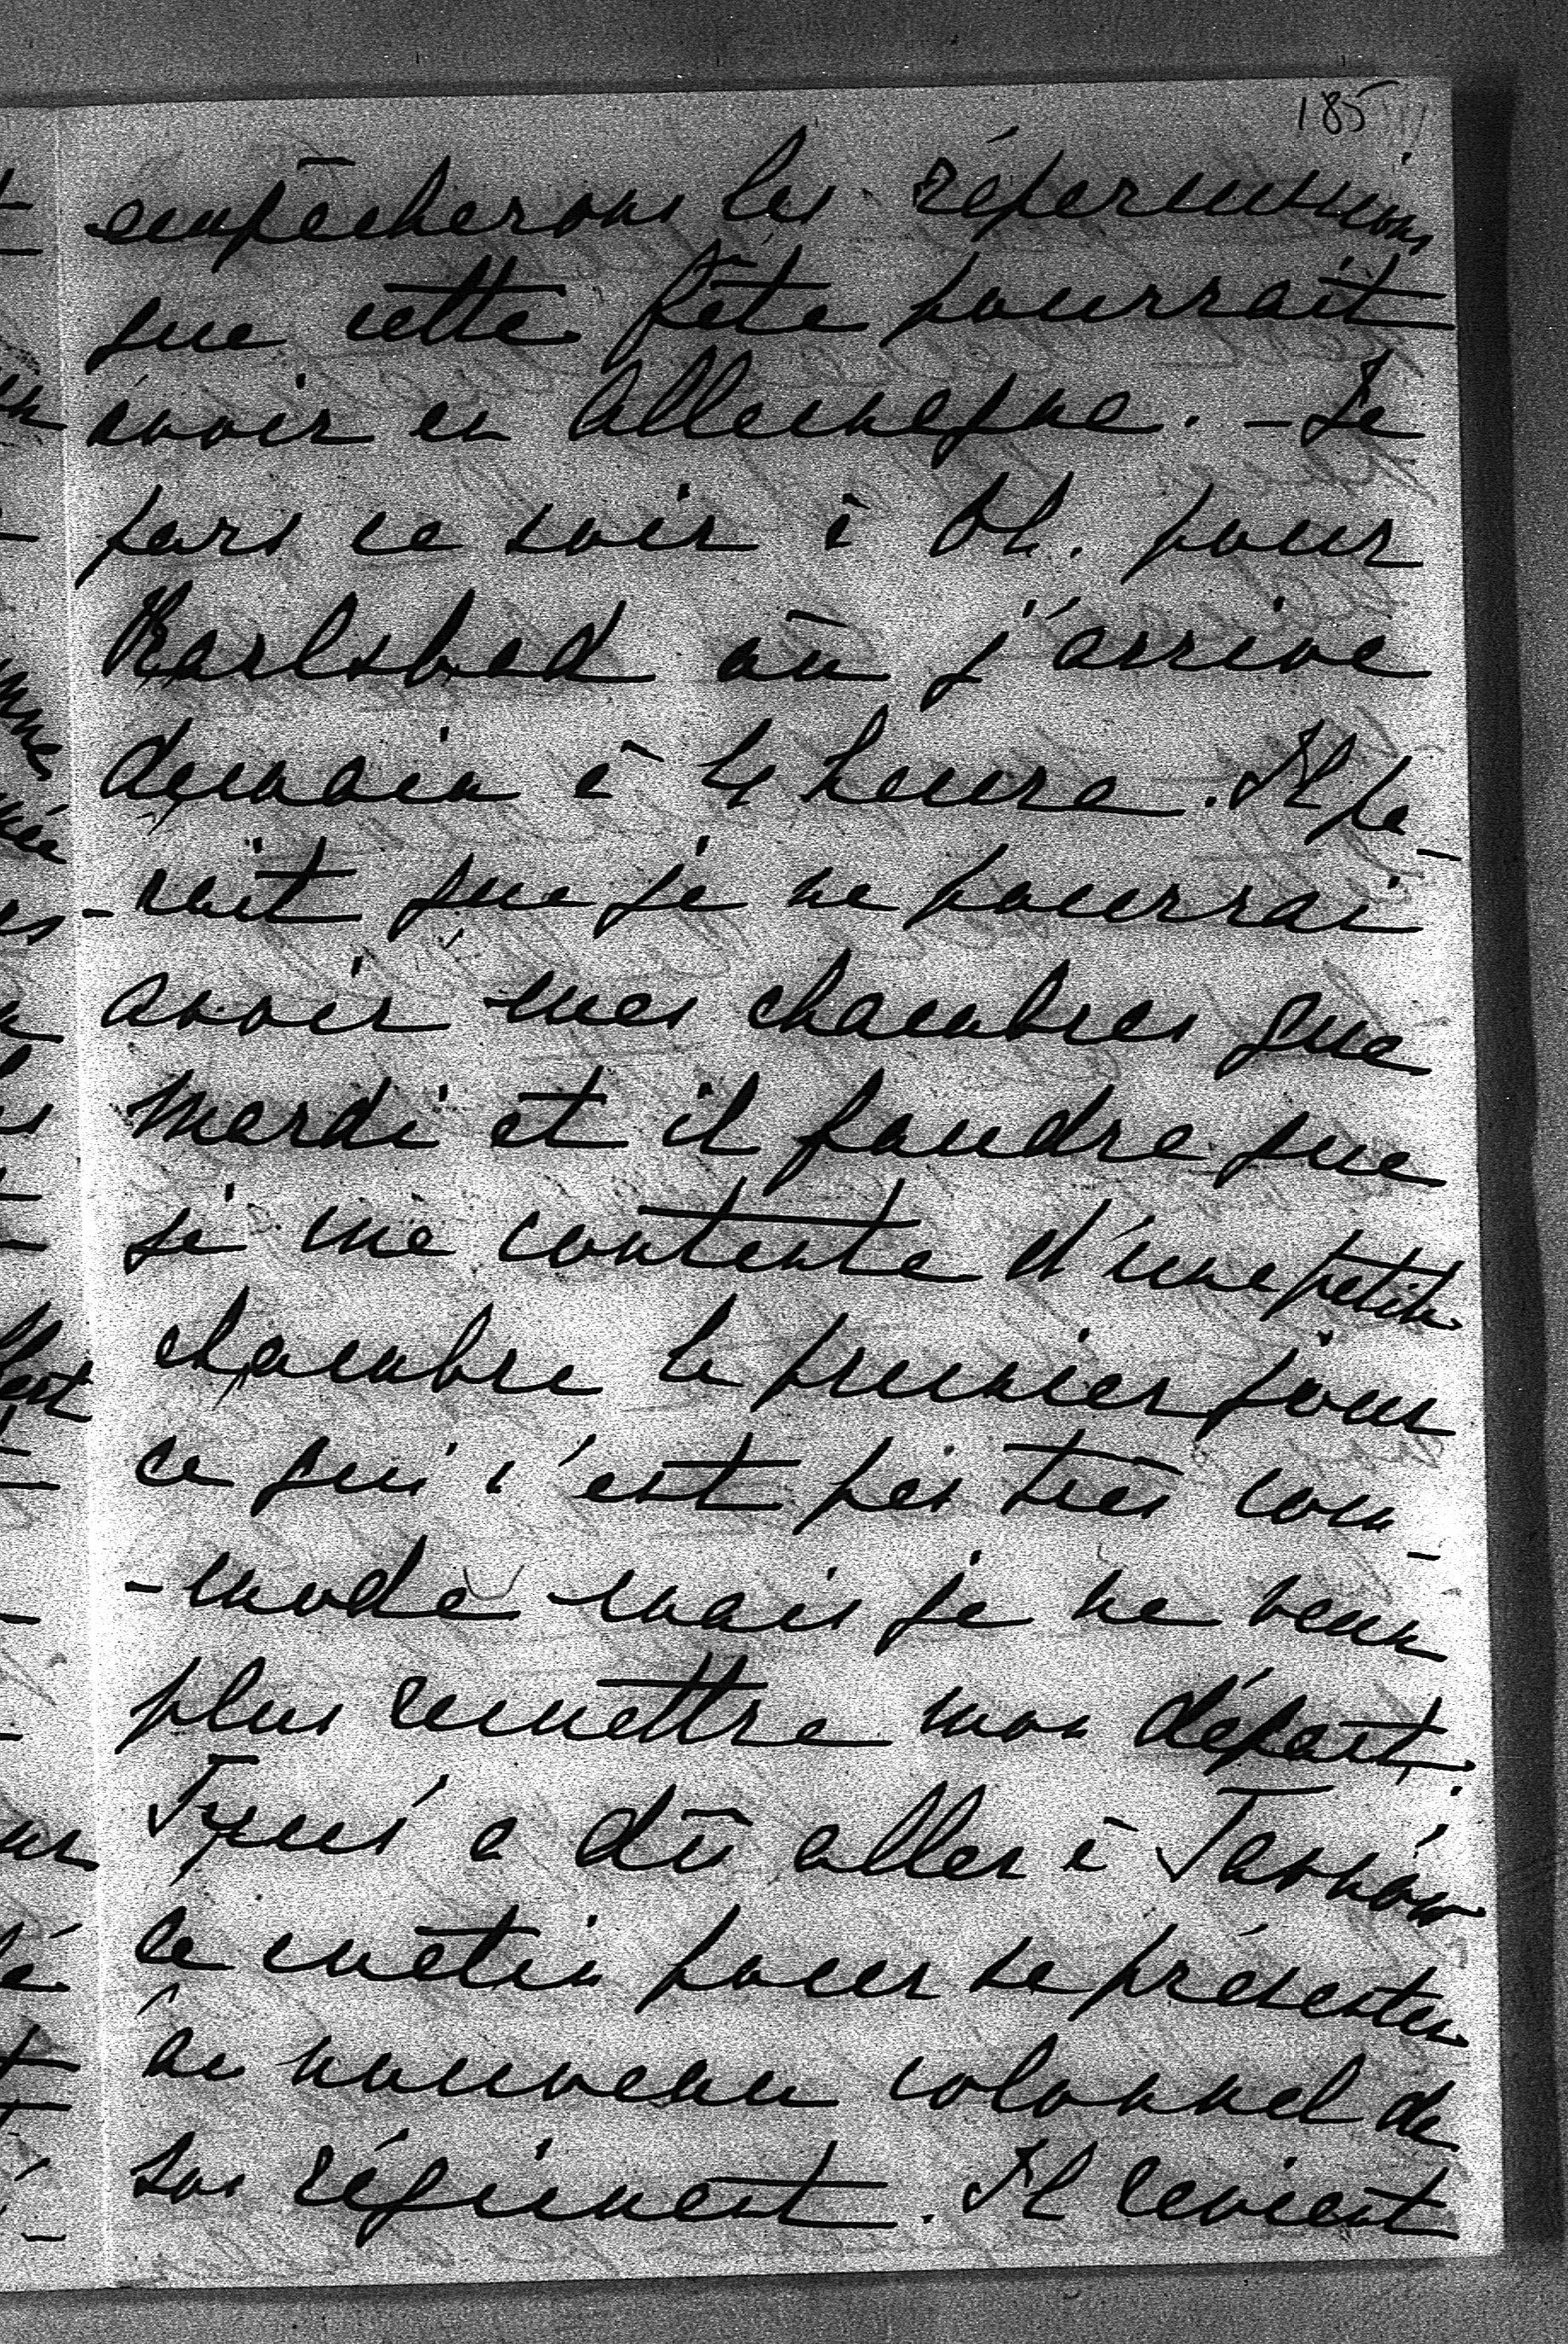 185
empêcherons les répercussions
que cette fête pourrait
avoir en Allemagne. - Je
pars ce soir à 6h. pour
Karlsbad où j'arrive
demain à 4 heure. Il pa-
-rait que je ne pourrai
avoir mes chambres que
mardi et il faudra que
je me contente d'une petite
chambre le premier jour
ce qui n'est pas très com-
-mode mais je ne veux
plus remettre mon départ.
a dû aller à Tarnów
ce matin pour se présenter
au nouveau colonnel de
son régiment. Il revient